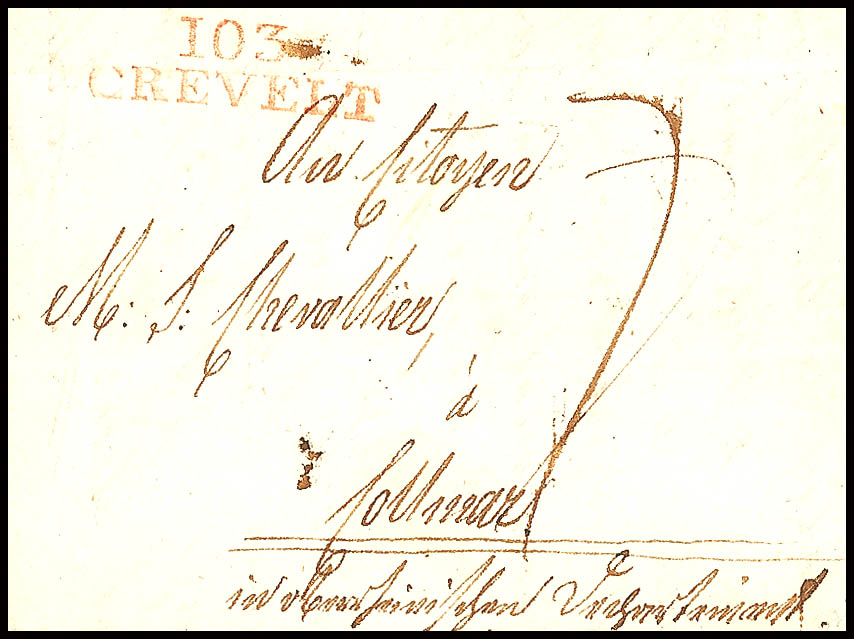 103
CREVELT
7
Au Citoyen
M: J: Chevallier,
à
Collmar
im oberrheinischen Departement.